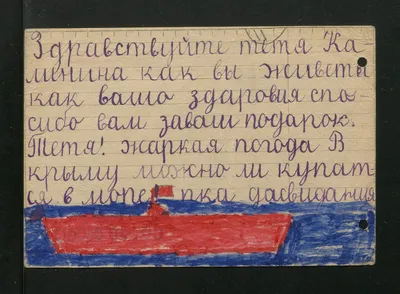 Здравствуйте тетя Ка-
линина как вы живеты
как вашо здаровия спа-
сибо вам заваш подарок.
Тетя! жаркая погода В
крыму можно ли купат
ся в море пка дасвидания